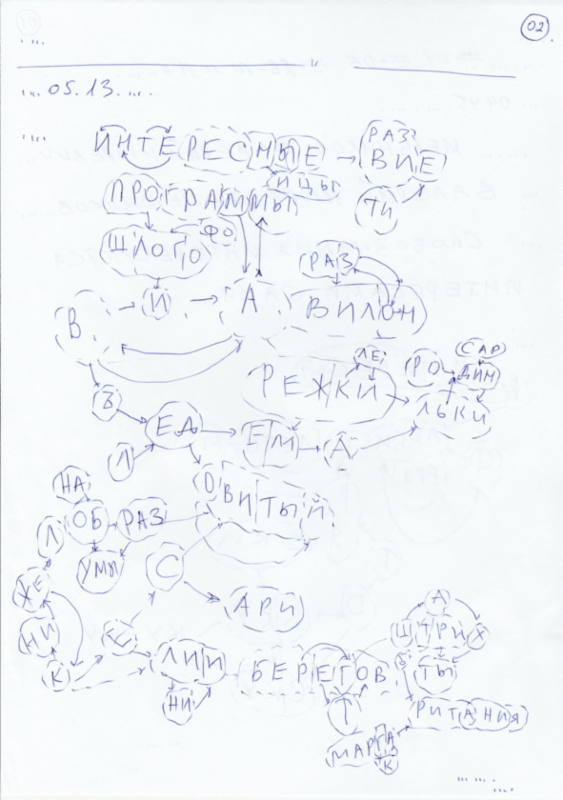 02
05.13.
ИНТЕРЕСНЫЕ РАЗ
ВИЕ
ПРОГРАММЫ ИЦЫ ТИ
ФО
ШЛОГО РАЗ
В И А ВИЛОН
ЛЕ РО САР
ДИН
РЕЖКИ
ЛЬКИ
Ъ
ЕД ЕМ А
Л
НА О
ВИТЫЙ
Л ОБ РАЗ
УМЫ С
ЖЕ
АРИ
НИ А
Ш ТРИ Х
К ЛИИ БЕРЕГОВ Б ТЫ
НИ Т РИТАНИЯ
МАРГА
К